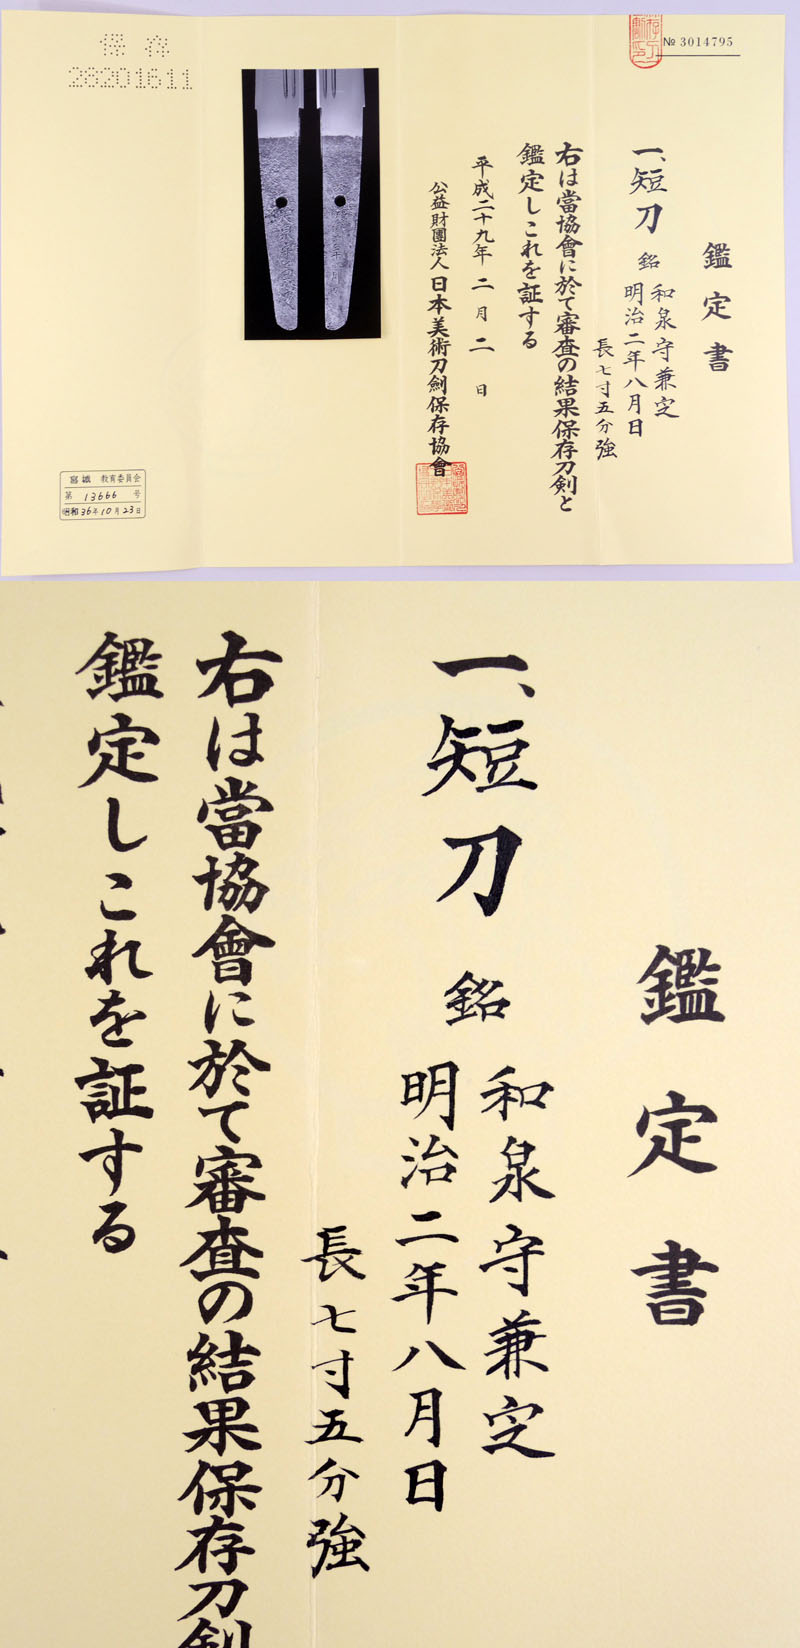 № 3014795
鑑定書
一、短刀 銘 和泉守兼定
明治二年八月日
長七寸五分強
右は當協會に於て審査の結果保存刀剣と
鑑定しこれを証する
平成二十九年 二月 二日
公益財團法人 日本美術刀劍保存協會
保存
28201611
宮城 教育委員会
第 13666 号
昭和 36年10月23日
鑑定書
一、短刀 銘 和泉守兼定
明治二年八月日
長七寸五分強
右は當協會に於て審査の結果保存刀剣
鑑定しこれを証する